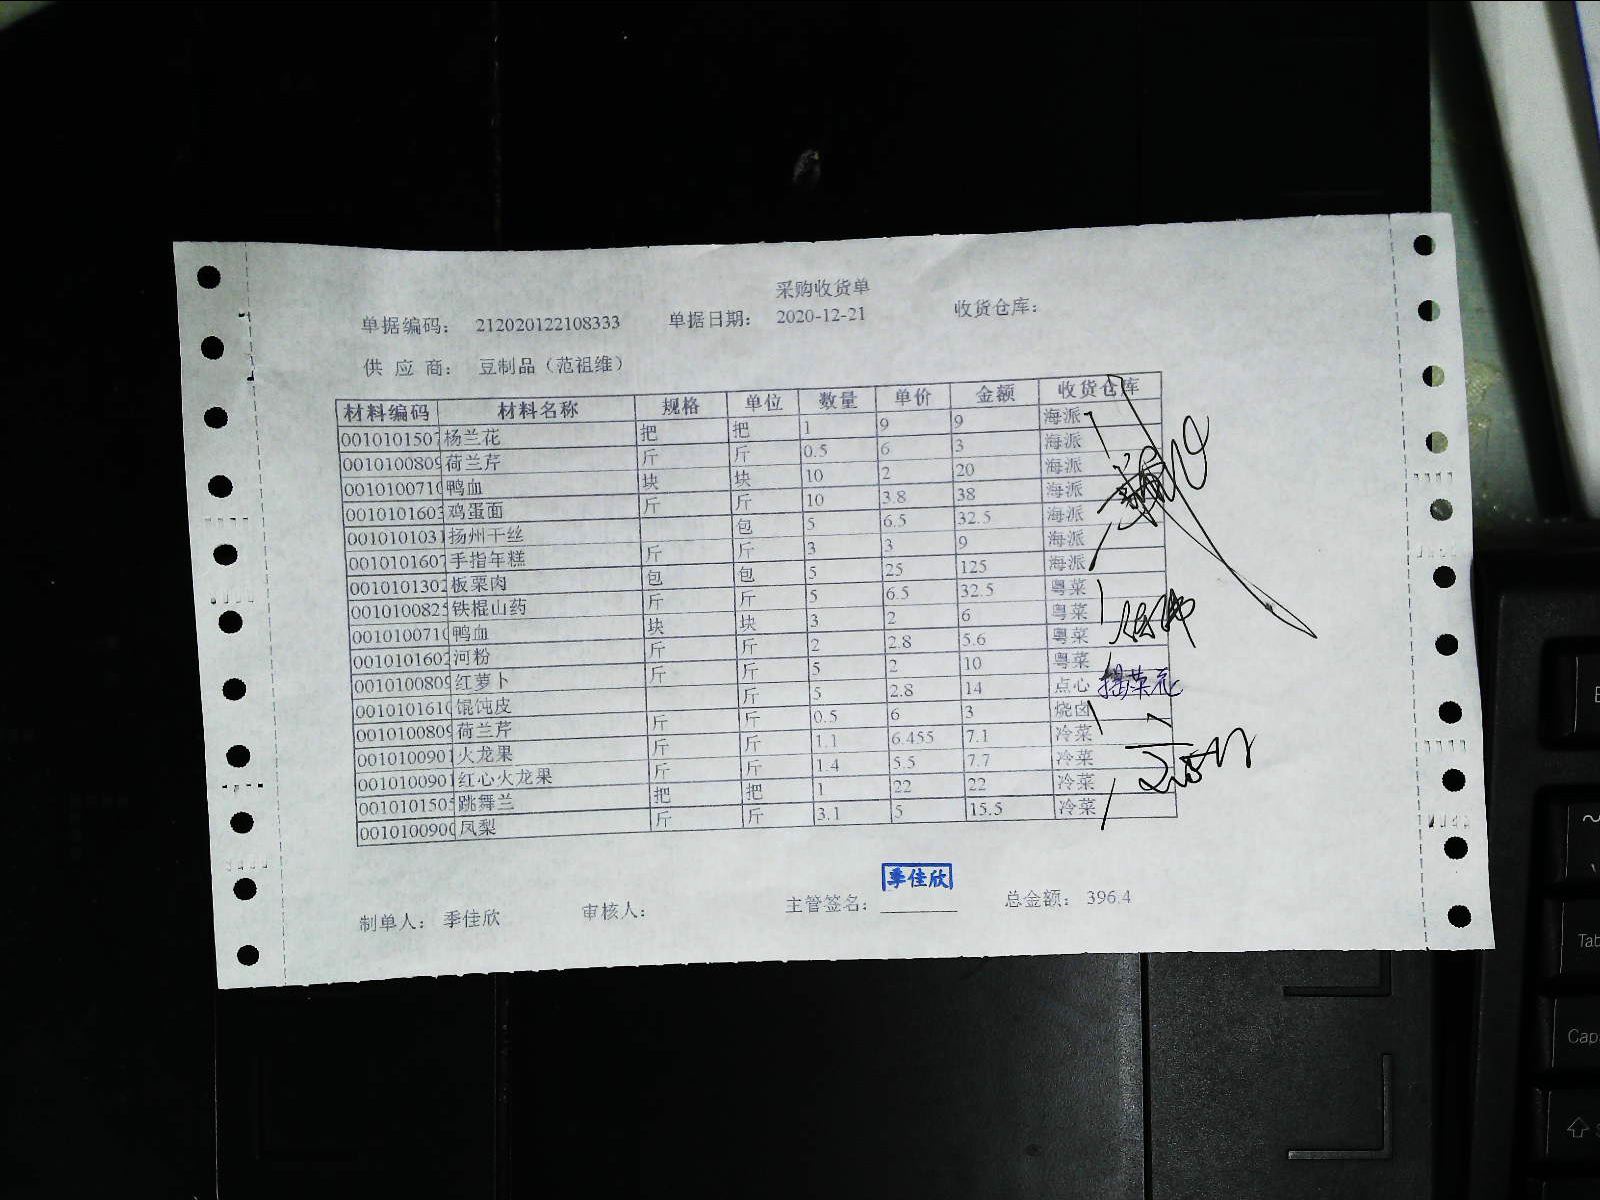 采购收货单
单据编码： 212020122108333 单据日期： 2020-12-21 收货仓库：
供 应 商： 豆制品（范祖维）
材料编码 材料名称 规格 单位 数量 单价 金额 收货仓库
0010101507 杨兰花 把 把 1 9 9 海派
0010100809 荷兰芹 斤 斤 0.5 6 3 海派
001010071 鸭血 块 块 10 2 20 海派
0010101603 鸡蛋面 斤 斤 10 3.8 38 海派
0010101031 扬州干丝 包 5 6.5 32.5 海派
0010101607 手指年糕 斤 斤 3 3 9 海派
0010101302 板栗肉 包 包 5 25 125 海派
0010100825 铁棍山药 斤 斤 5 6.5 32.5 粤菜
001010071 鸭血 块 块 3 2 6 粤菜
0010101602 河粉 斤 斤 2 2.8 5.6 粤菜
0010100809 红萝卜 斤 斤 5 2 10 粤菜
001010161 馄饨皮 斤 5 2.8 14 点心
0010100809 荷兰芹 斤 斤 0.5 6 3 烧卤
0010100901 火龙果 斤 斤 1.1 6.455 7.1 冷菜
0010100901 红心火龙果 斤 斤 1.4 5.5 7.7 冷菜
0010101505 跳舞兰 把 把 1 22 22 冷菜
001010090 凤梨 斤 斤 3.1 5 15.5 冷菜
季佳欣
制单人： 季佳欣 审核人： 主管签名： 总金额： 396.4
Tab
Cap